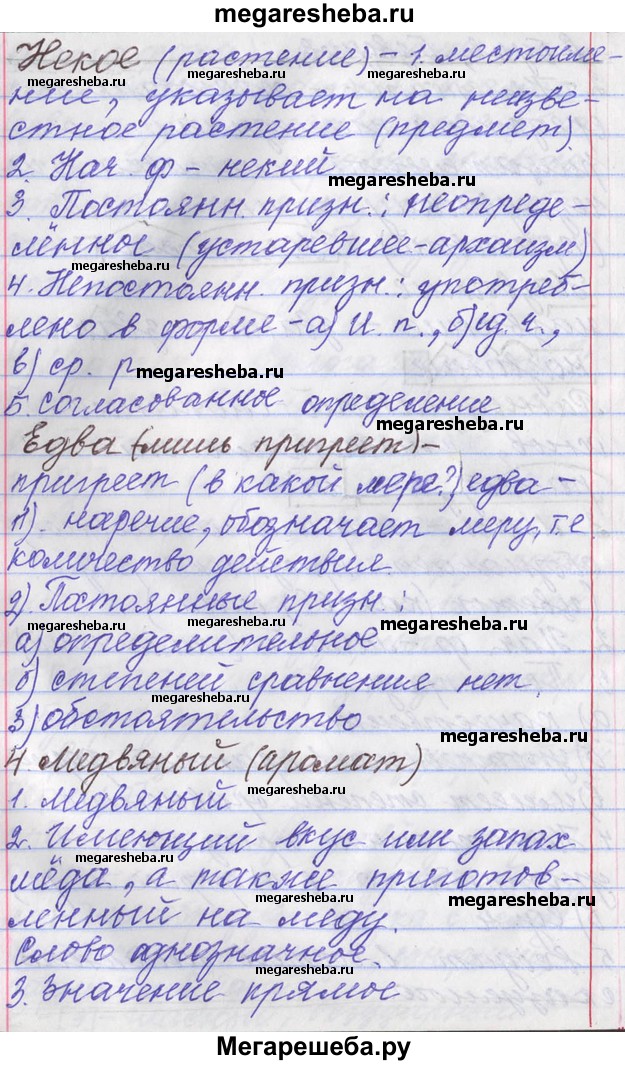 megaresheba.ru
Некое (растение) – 1. местоиме-
megaresheba.ru megaresheba.ru megaresheba.ru
ние, указывает на неизве-
стное растение (предмет).
2. Нач. ф – некий
megaresheba.ru
3. Постоянн. призн.: неопреде-
лённое (устаревшее-архаизм)
megaresheba.ru megaresheba.ru
4. Непостоянн. призн.: употреб-
лено в форме – а) И. п., б) ед. ч.,
в) ср. р
megaresheba.ru
5. Согласованное определение
Едва (лишь пригреет) –
megaresheba.ru megaresheba.ru
пригреет (в какой мере?) едва –
1). наречие, обозначает меру, т.е
megaresheba.ru
количество действия.
megaresheba.ru
2) Постоянные призн.:
а) определительное
megaresheba.ru
б) степеней сравнения нет.
megaresheba.ru
3) обстоятельство
megaresheba.ru
4. Медвяный (аромат)
1. медвяный
megaresheba.ru
2. Имеющий вкус или запах
megaresheba.ru megaresheba.ru
мёда, а также приготов-
megaresheba.ru
ленный на меду.
Слово однозначное.
megaresheba.ru
3. Значение прямое
Мегарешеба.ру